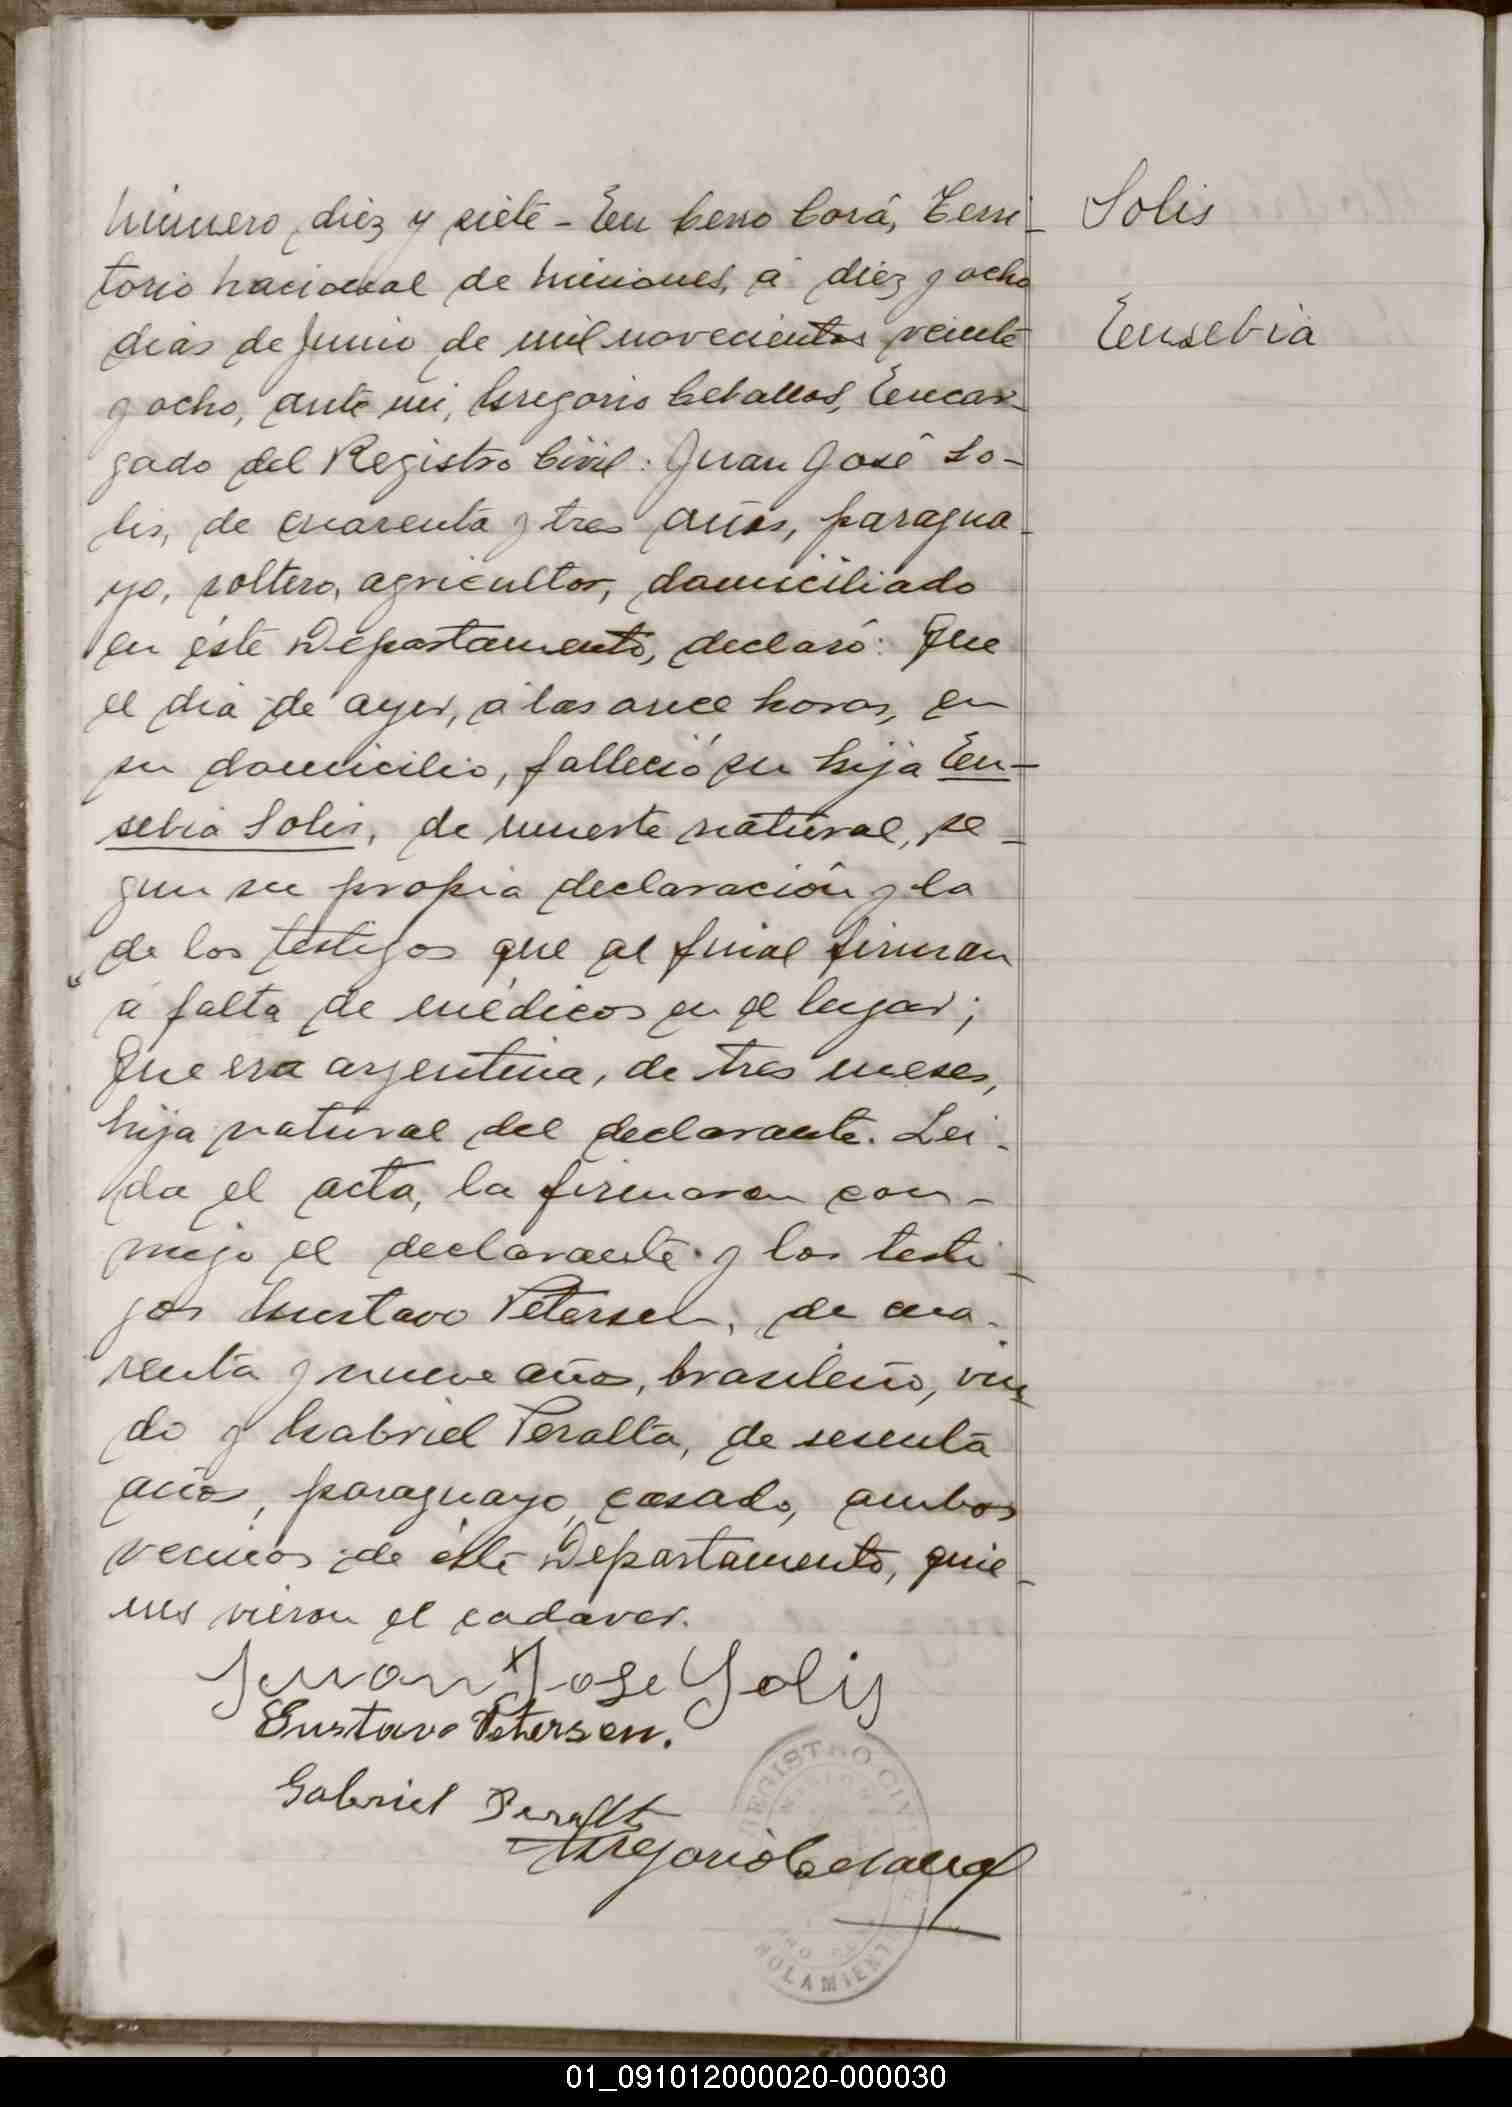 Número diez y siete - En Cerro Corá, Terri-
torio nacional de Misiones, á diez y ocho
dias de Junio de mil novecientos veinte
y ocho, ante mi, Gregorio Ceballos, Encar-
gado del Registro Civil: Juan José So-
lis, de cuarenta y tres años, paragua-
yo, soltero, agricultor, domiciliado
en éste Departamento, declaró: Que
el dia de ayer, a las once horas, en
su domicilio, falleció su hija Eu-
sebia Solis, de muerte natural, se-
gun su propia declaración y la
de los testigos que al final firman
a falta de médicos en el lugar;
Que era argentina, de tres meses,
hija natural del declarante. Lei-
da el acta, la firmaron con-
migo el declarante y los testi-
gos Gustavo Petersen, de cua-
renta y nueve años, brasileño, viu-
do y Gabriel Peralta, de sesenta
años, paraguayo, casado, ambos
vecinos de éste Departamento, quie-
nes vieron el cadaver.
Juan Jose Solis
Gustavo Petersen.
Gabriel Peralta
Gregorio Ceballos
REGISTRO CIVIL
Solis
Eusebia
01_091012000020-000030